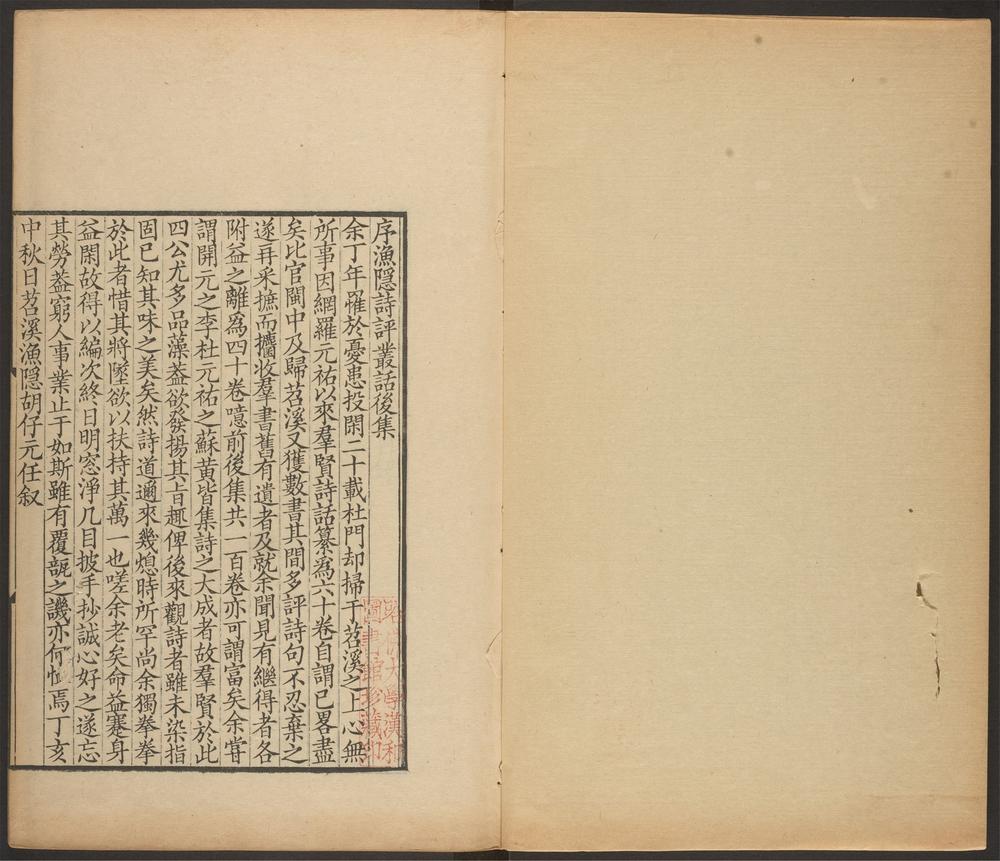 序漁隱詩評叢話後集
余丁年罹於憂患投閑二十載杜門却掃于苕溪之上心無
所事因網羅元祐以來羣賢詩話纂為六十卷自謂已畧盡
矣比官閩中及歸苕溪又獲數書其間多評詩句不忍棄之
遂再采摭而攟收羣書舊有遺者及就余聞見有繼得者各
附益之離爲四十卷噫前後集共一百卷亦可謂富矣余嘗
謂開元之李杜元祐之蘇黃皆集詩之大成者故羣賢於此
四公尤多品藻葢欲發揚其旨趣俾後來觀詩者雖未染指
固已知其味之美矣然詩道邇來幾熄時所罕尚余獨拳拳
於此者惜其將墜欲以扶持其萬一也嗟余老矣命益蹇身
益閑故得以編次終日明窓淨几目披手抄誠心好之遂忘
其勞葢窮人事業止于如斯雖有覆瓿之譏亦何恤焉丁亥
中秋日苕溪漁隱胡仔元任叙
哈佛大學漢和
圖書館珍藏印